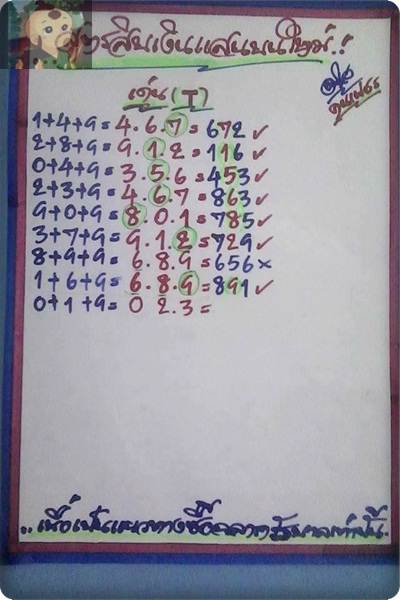 สูตรสิบเงินแสนบนใหม่.!
เด่น(T)
1+4+9= 4.6.7= 672 ✓
2+8+9= 9.1.2= 116 ✓
0+4+9= 3.5.6= 453 ✓
2+3+9= 4.6.7= 863 ✓
9+0+9= 8.0.1= 785 ✓
3+7+9= 9.1.2= 729 ✓
8+9+9= 6.8.9= 656 ×
1+6+9= 6.8.9= 891 ✓
0+1+9= 0 2.3=
..เพื่อเป็นแนวทางซื้อสลากรัฐบาลเท่านั้น.